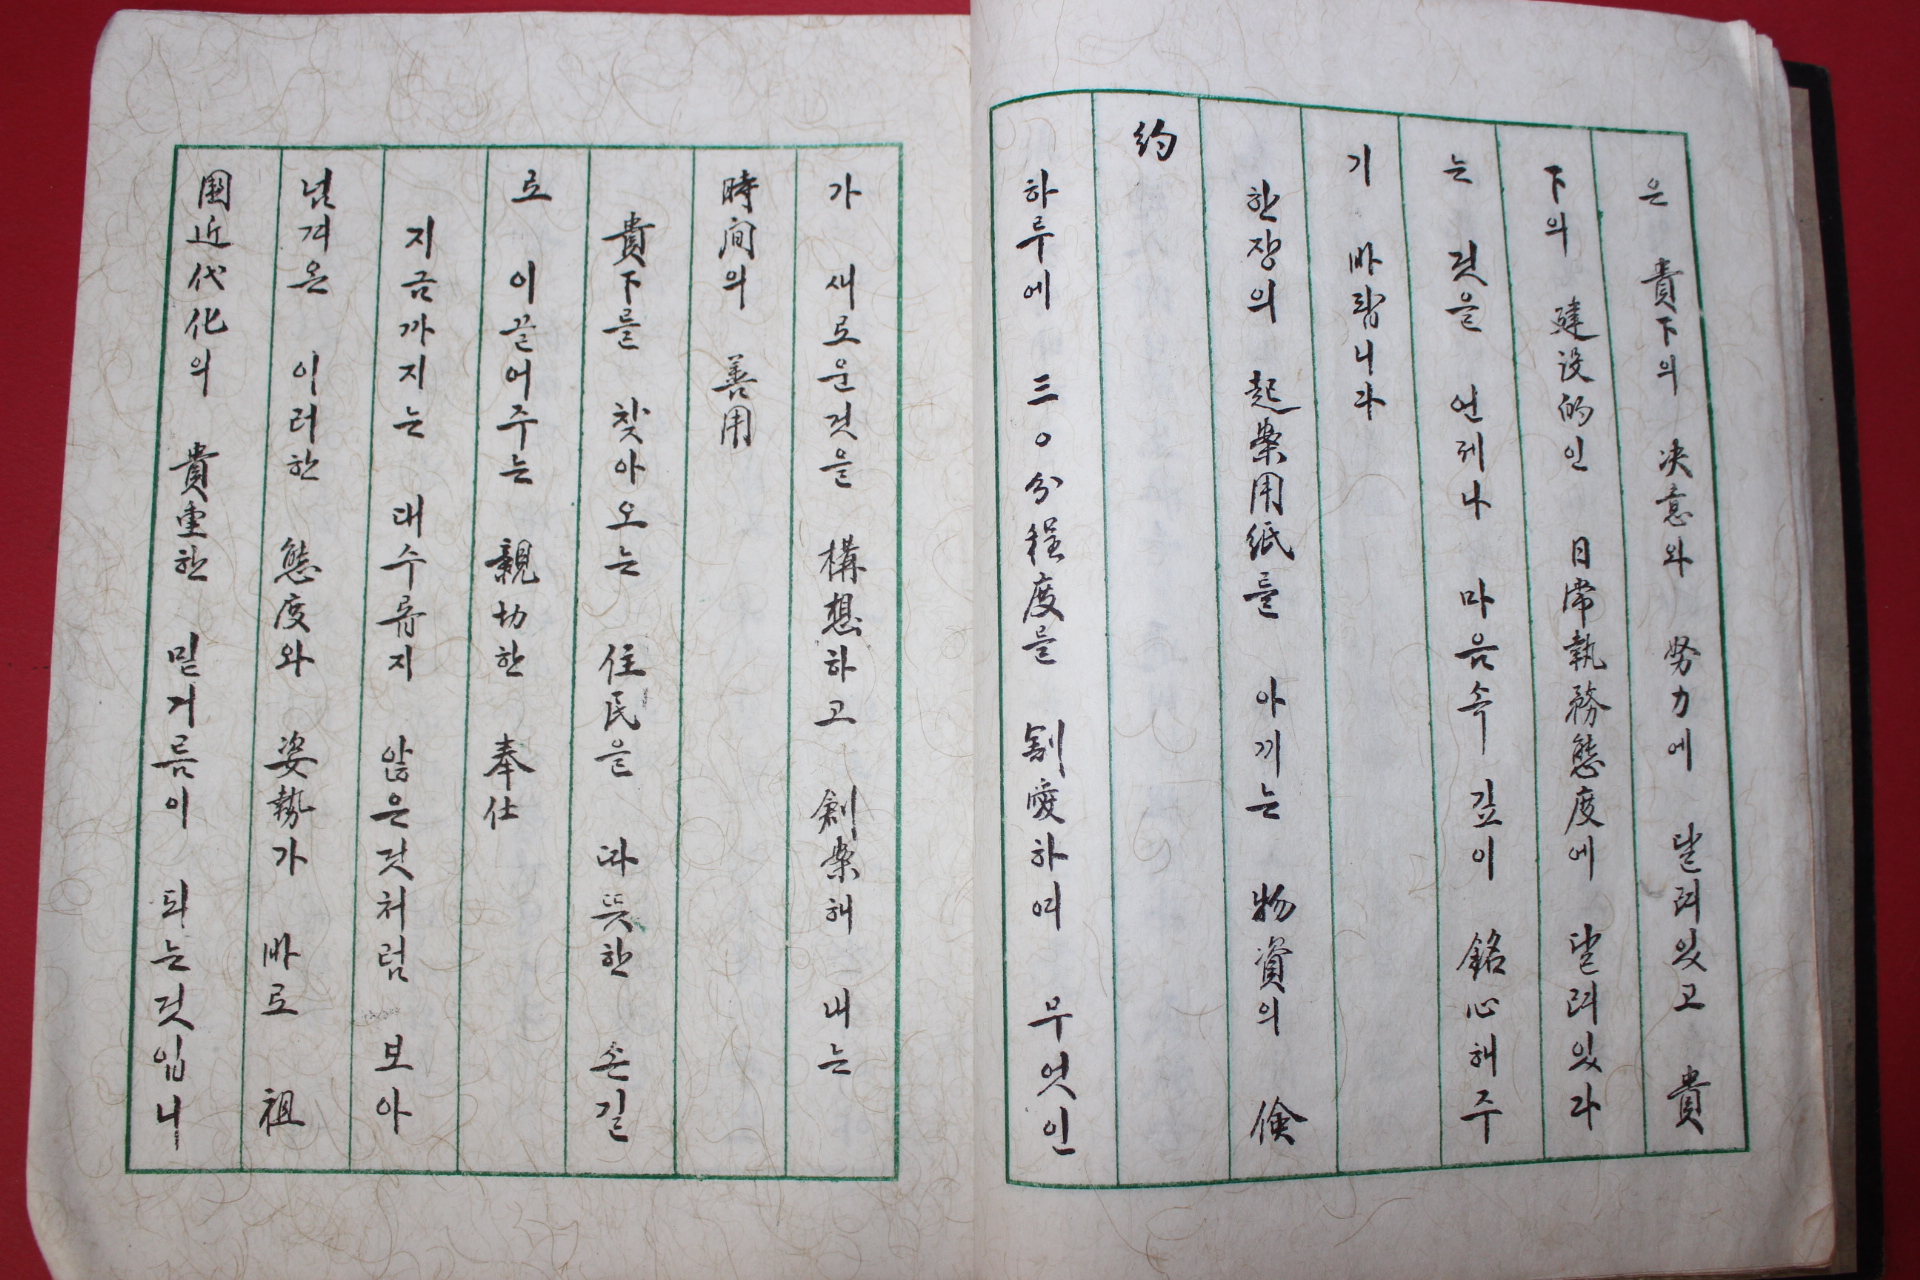 은 貴下의 决意와 努力에 달려있고 貴
下의 建设的인 日常執務態度에 달려있다
는 것을 언제나 마음속 깊이 銘心해주
기 바랍니다
한장의 起案用紙를 아끼는 物資의 儉
約
하루에 三○分程度를 割愛하여 무엇인
가 새로운것을 構想하고 創案해 내는
時间의 善用
貴下를 찾아오는 住民을 따뜻한 손길
로 이끌어주는 親切한 奉仕
지금까지는 대수롭지 않은것처럼 보아
넘겨온 이러한 態度와 姿勢가 바로 祖
国近代化의 貴重한 밑거름이 되는것입니